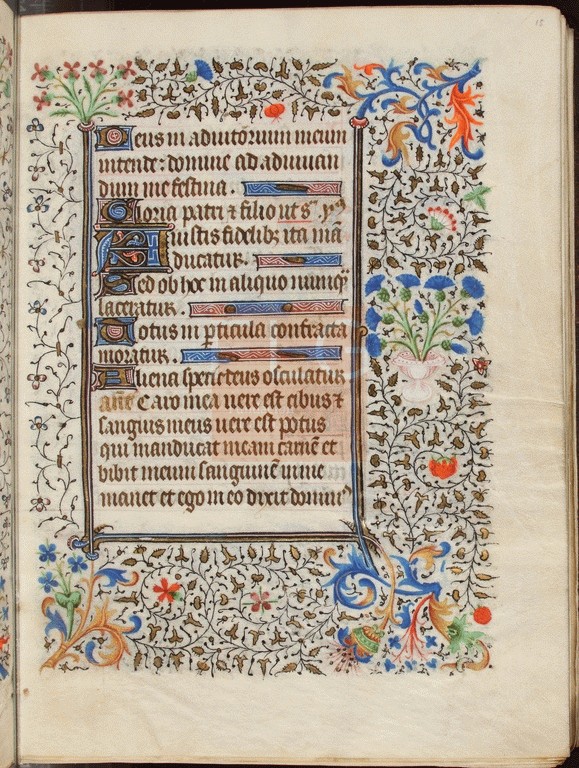 15
Deus in adiutorium meum
intende: domine ad adiuuan
dum me festina.
Gloria patri ⁊ filio ut sͣ.
uistis fidelibꝫ ita mā
ducatur.
Sed ob hoc in aliquo nunqͣ
laceratur.
Totus in ꝑticula confracta
moratur.
Aliena specie deus osculatur
añ Caro mea uere est cibus ⁊
sanguis meus uere est potus
qui manducat meam carnē et
bibit meum sanguinē in me
manet et ego in eo dixit dominꝰ